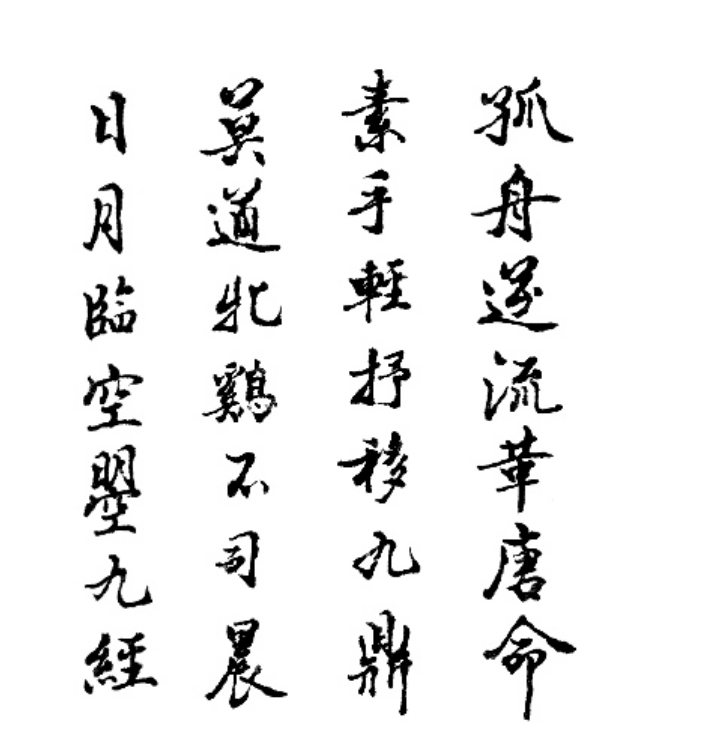 孤舟逆流革唐命
素手輕抒移九鼎
莫道牝鷄不司晨
日月臨空曌九經